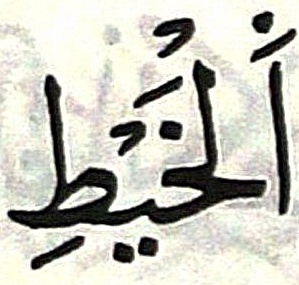 اَلْخَيْطِ